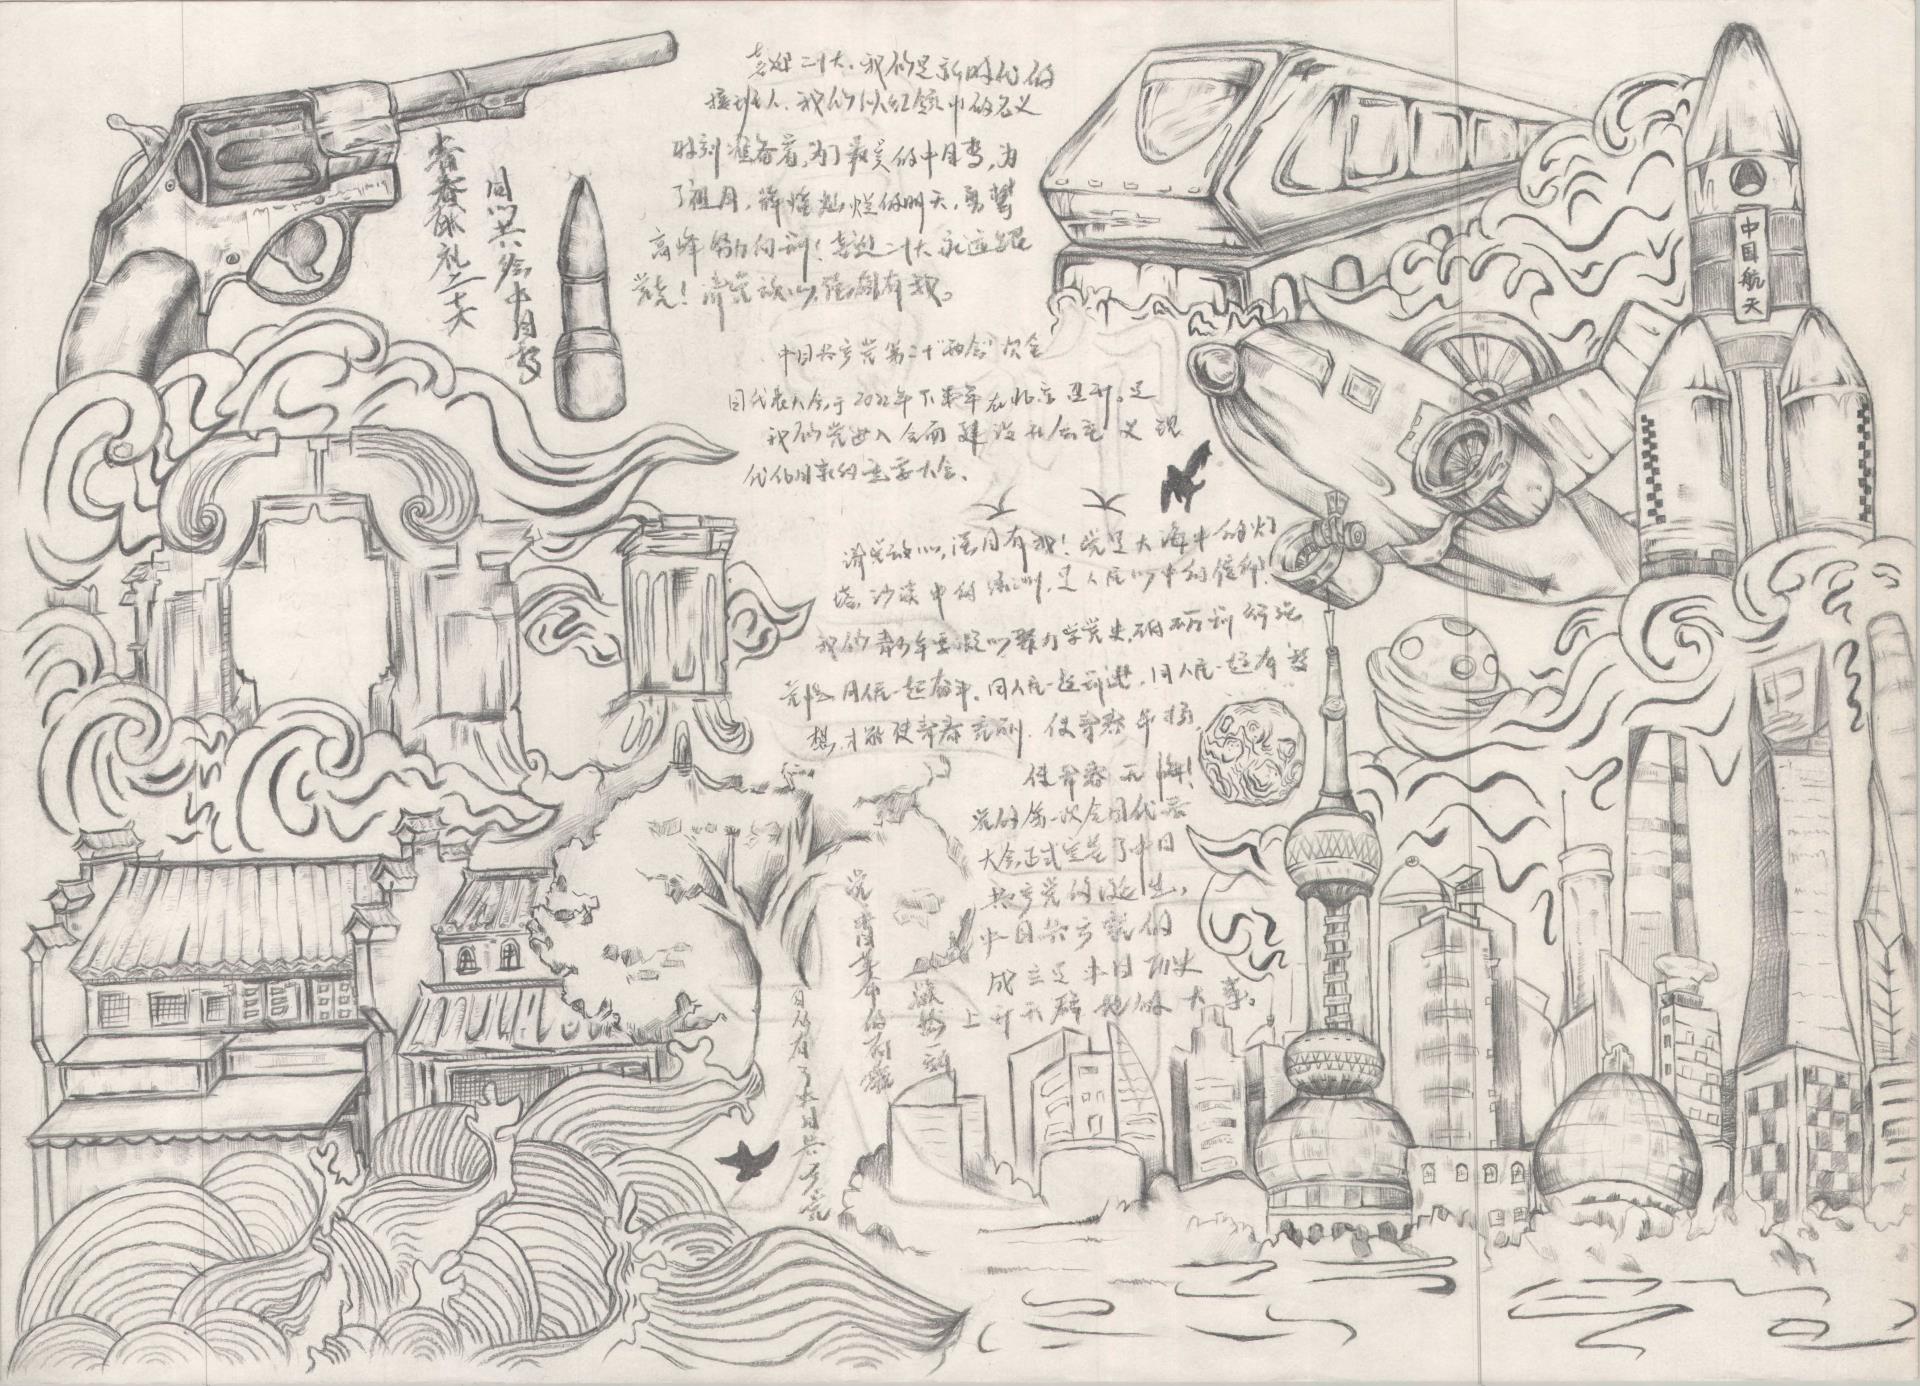 喜迎二十大，我们是新时代的
接班人，我们以红领巾的名义
时刻准备着，为了最美的中国梦，为
了祖国，辉煌灿烂的明天，勇攀
高峰努力向前！喜迎二十大永远跟
党走！请党放心，强国有我。
青春献礼二十大
同心共绘中国梦
中国航天
中国共产党第二十次全
国代表大会于2022年下半年在北京召开。是
我们党进入全面建设社会主义现
代化国家的重要大会。
请党放心，强国有我！党是大海中的灯
塔，沙漠中的绿洲，是人民心中的信仰！
我们青少年要凝心聚力学党史，
同人民一起奋斗，同人民一起前进，同人民一起有梦
想，才能使青春亮丽，使青春昂扬，
使青春无悔！
党的第一次全国代表
大会正式宣告了中国
共产党的诞生，
中国共产党的
成立是中国历史
上开天辟地的大事。
自从有了中国共产党